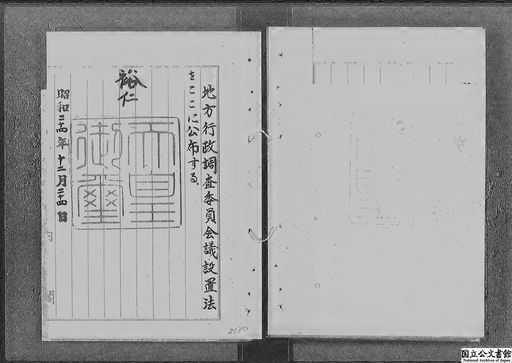 地方行政調査委員会議設置法
をここに公布する。
裕仁
天皇御璽
昭和二十四年十二月二十四日
2180
国立公文書館
National Archives of Japan